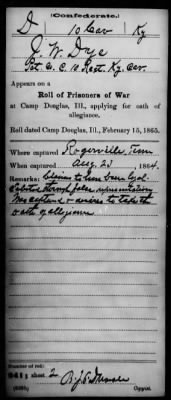 (Confederate.)
D 10 Cav Ky
J. W. Dye
Pvt. Co. C. 10 Regt. Ky. Cav.
Appears on a
Roll of Prisoners of War
at Camp Douglas, Ill., applying for oath of
allegiance.
Roll dated Camp Douglas, Ill., February 15, 1865.
Where captured Rogersville, Tenn
When captured Aug. 23, 1864.
Remarks: Claims to have been loyal.
through false representations
& desires to take the
oath of allegiance
Number of roll:
241; sheet 2
Copyist.